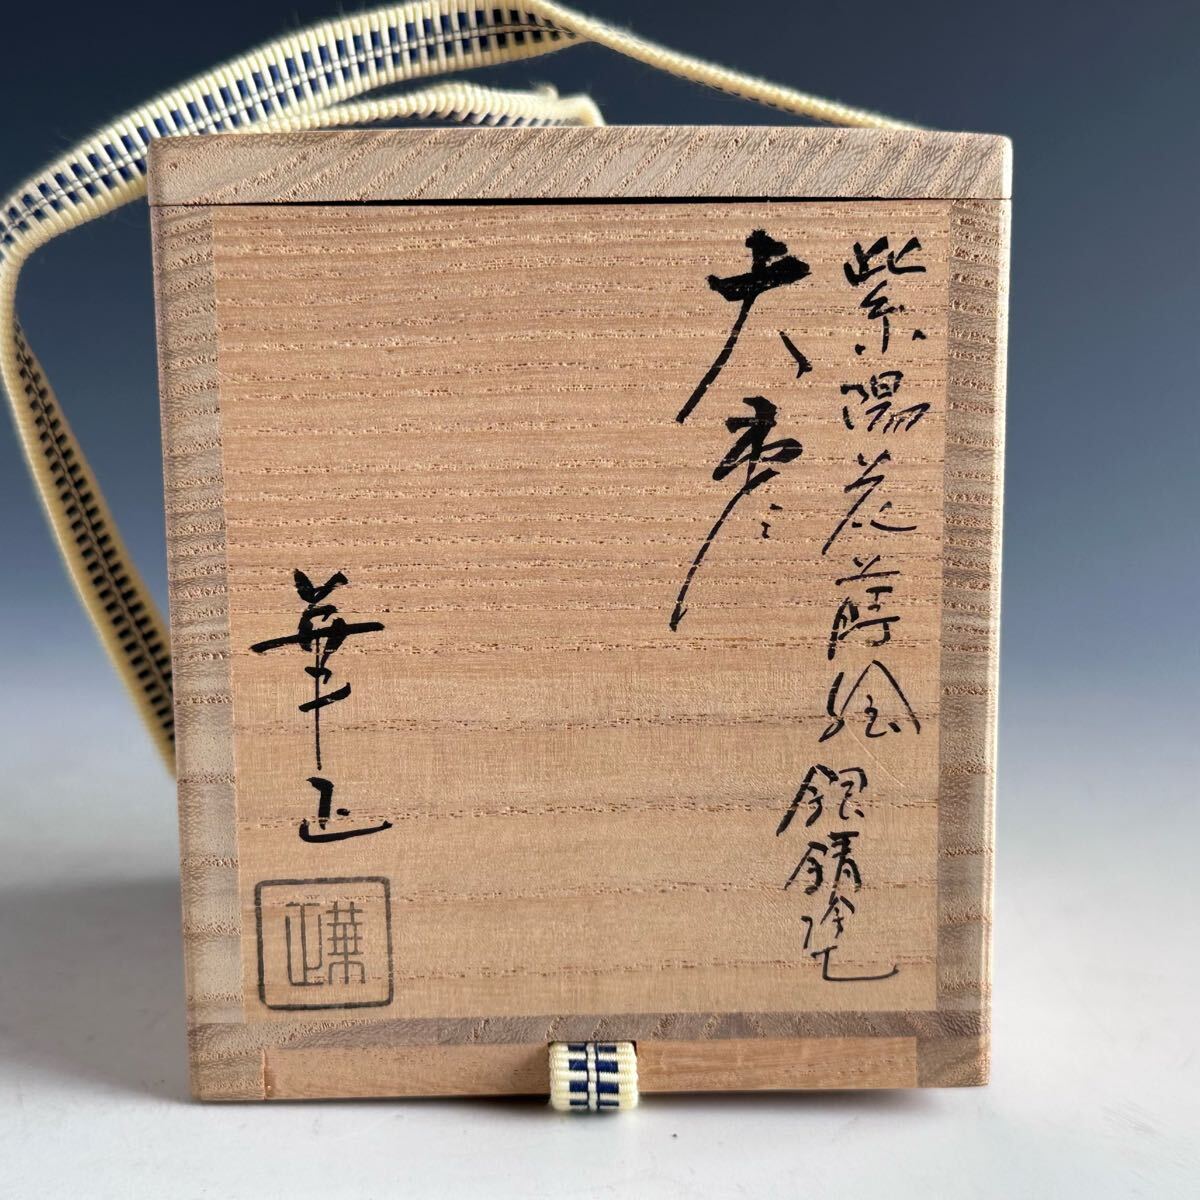 紫陽花蒔絵銀錆塗
大棗
華正
華正